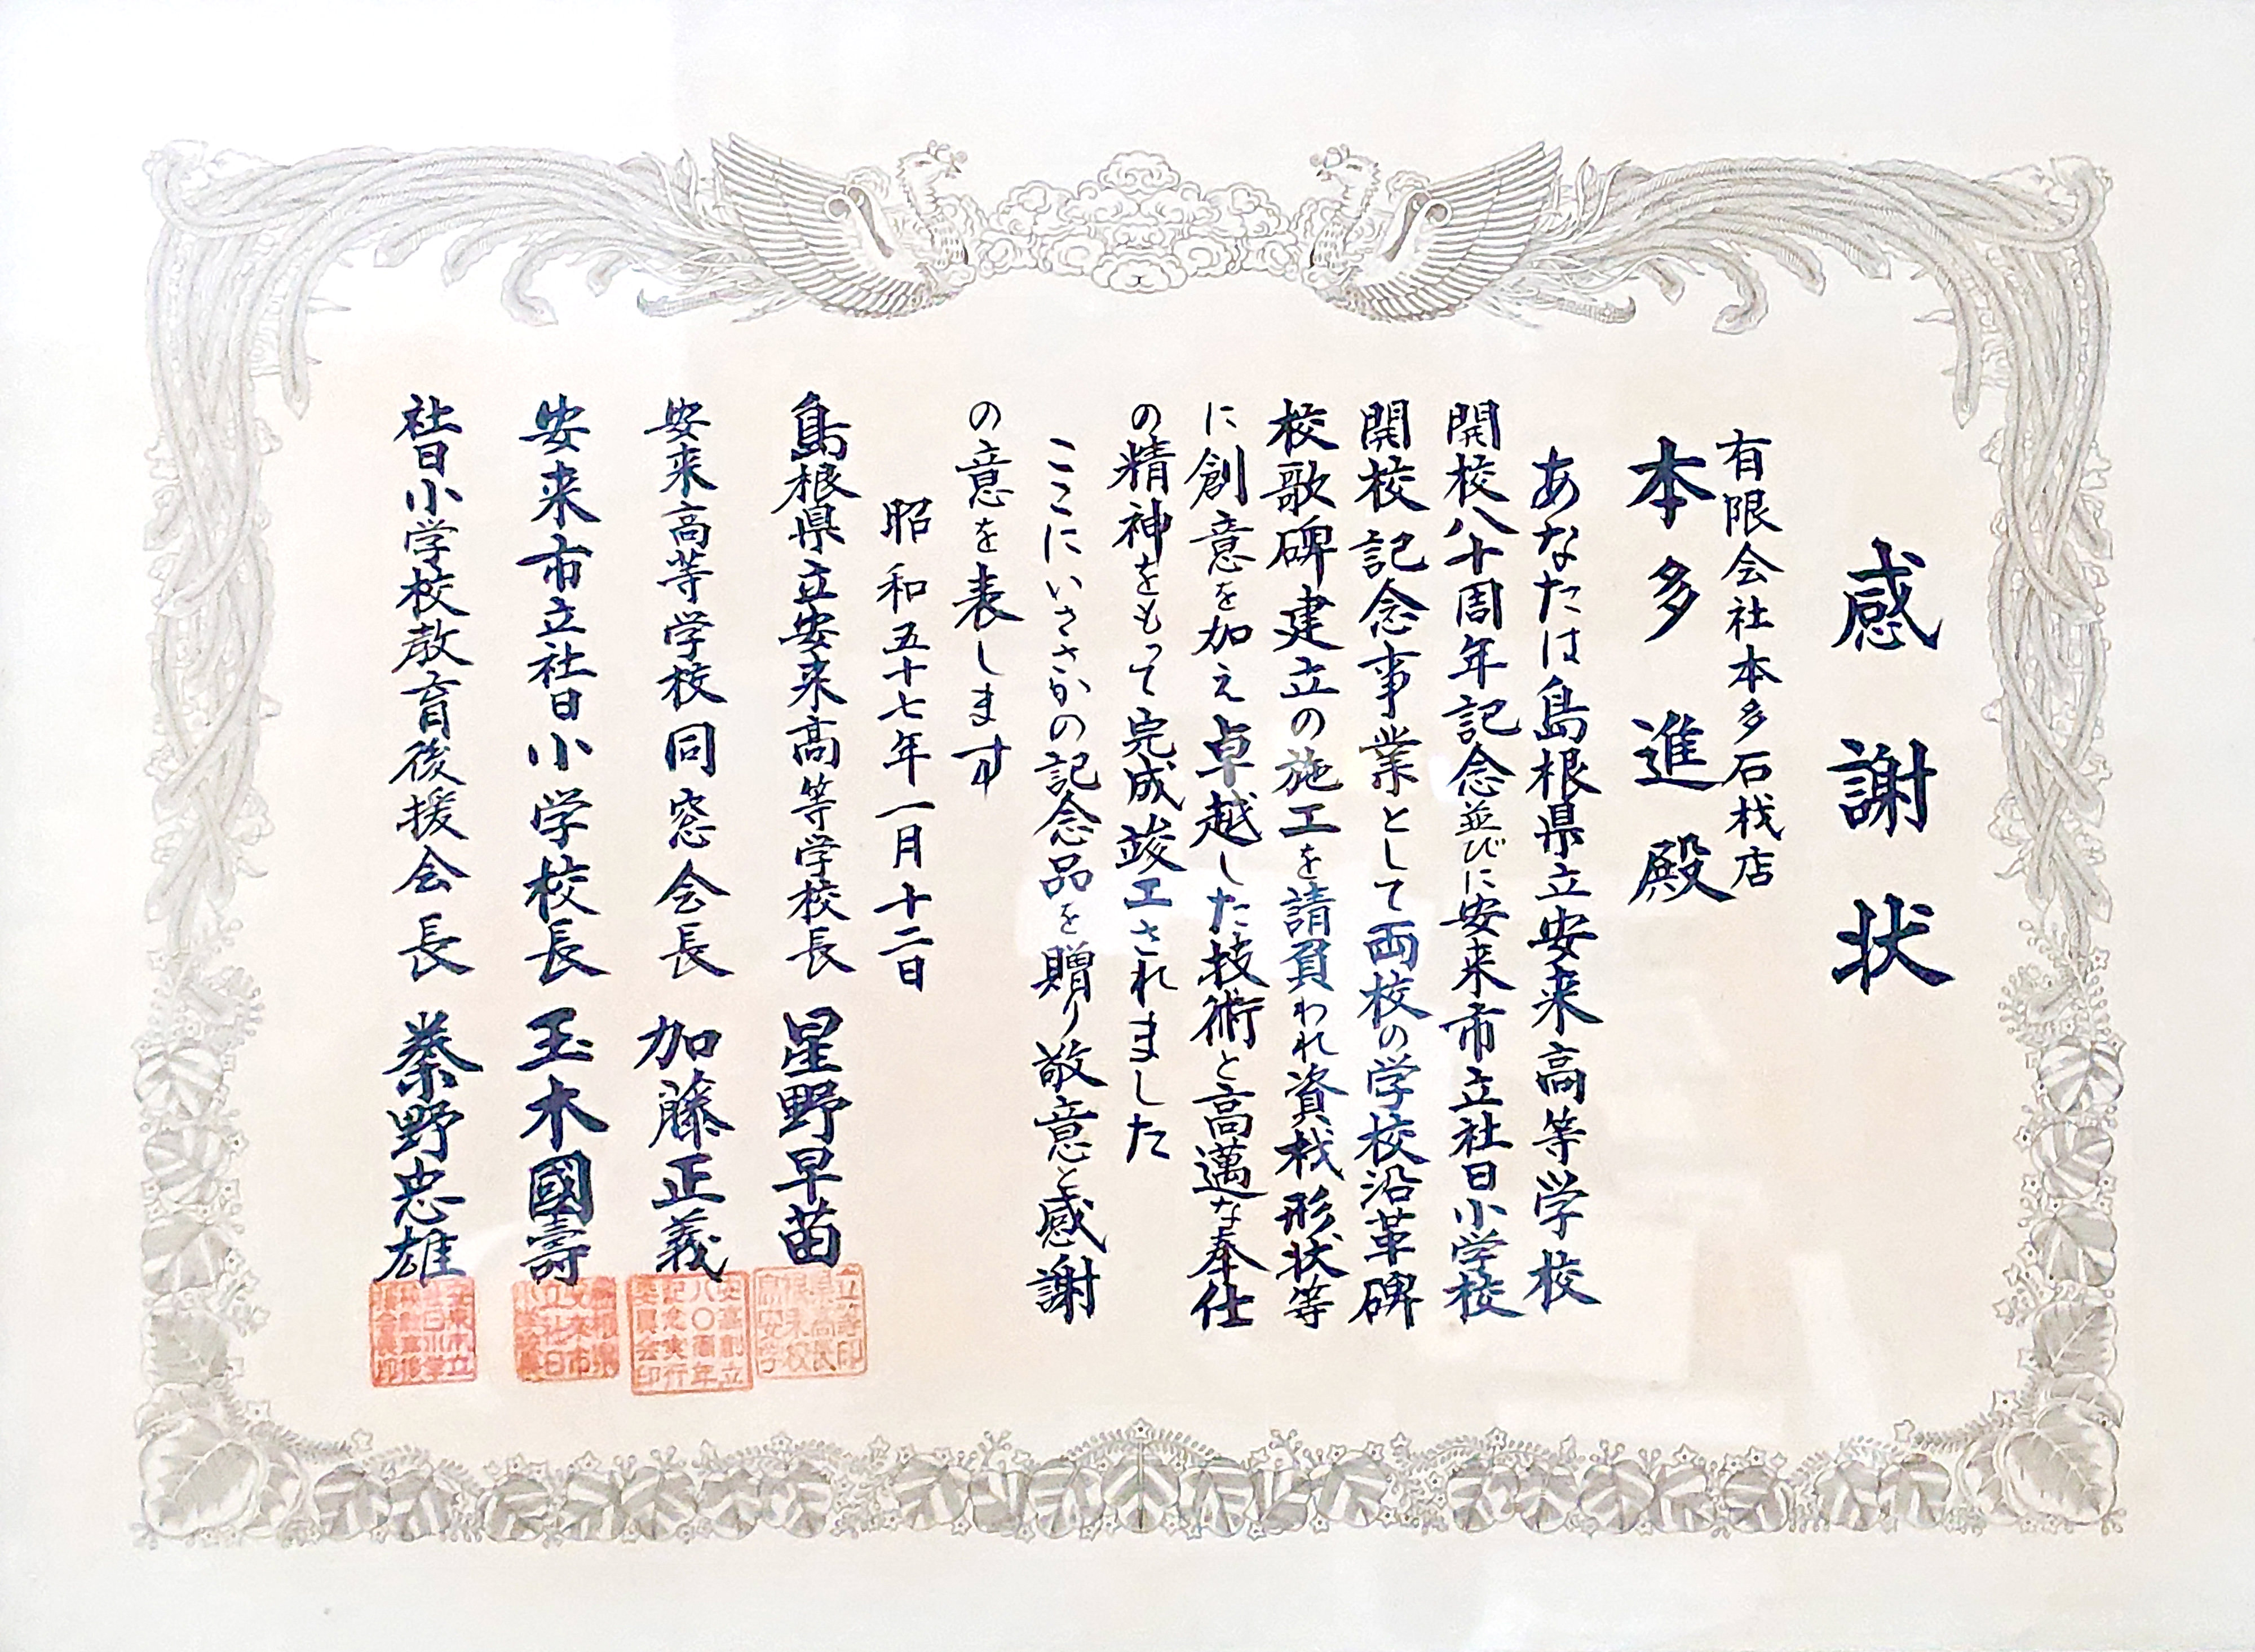 感謝状
有限会社本多石材店
本多進殿
あなたは島根県立安来高等学校
開校八十周年記念並びに安来市立社日小学校
開校記念事業として両校の学校沿革碑
校歌碑建立の施工を請負われ資材形状等
に創意を加え卓越した技術と高邁な奉仕
の精神をもって完成竣工されました
ここにいささかの記念品を贈り敬意と感謝
の意を表します
昭和五十七年一月十二日
島根県立安来高等学校長 星野早苗
安来高等学校同窓会長 加藤正義
安来市立社日小学校長 玉木國壽
社日小学校教育後援会長 秦野忠雄
安高創立
八〇周年
記念実行
委員会印